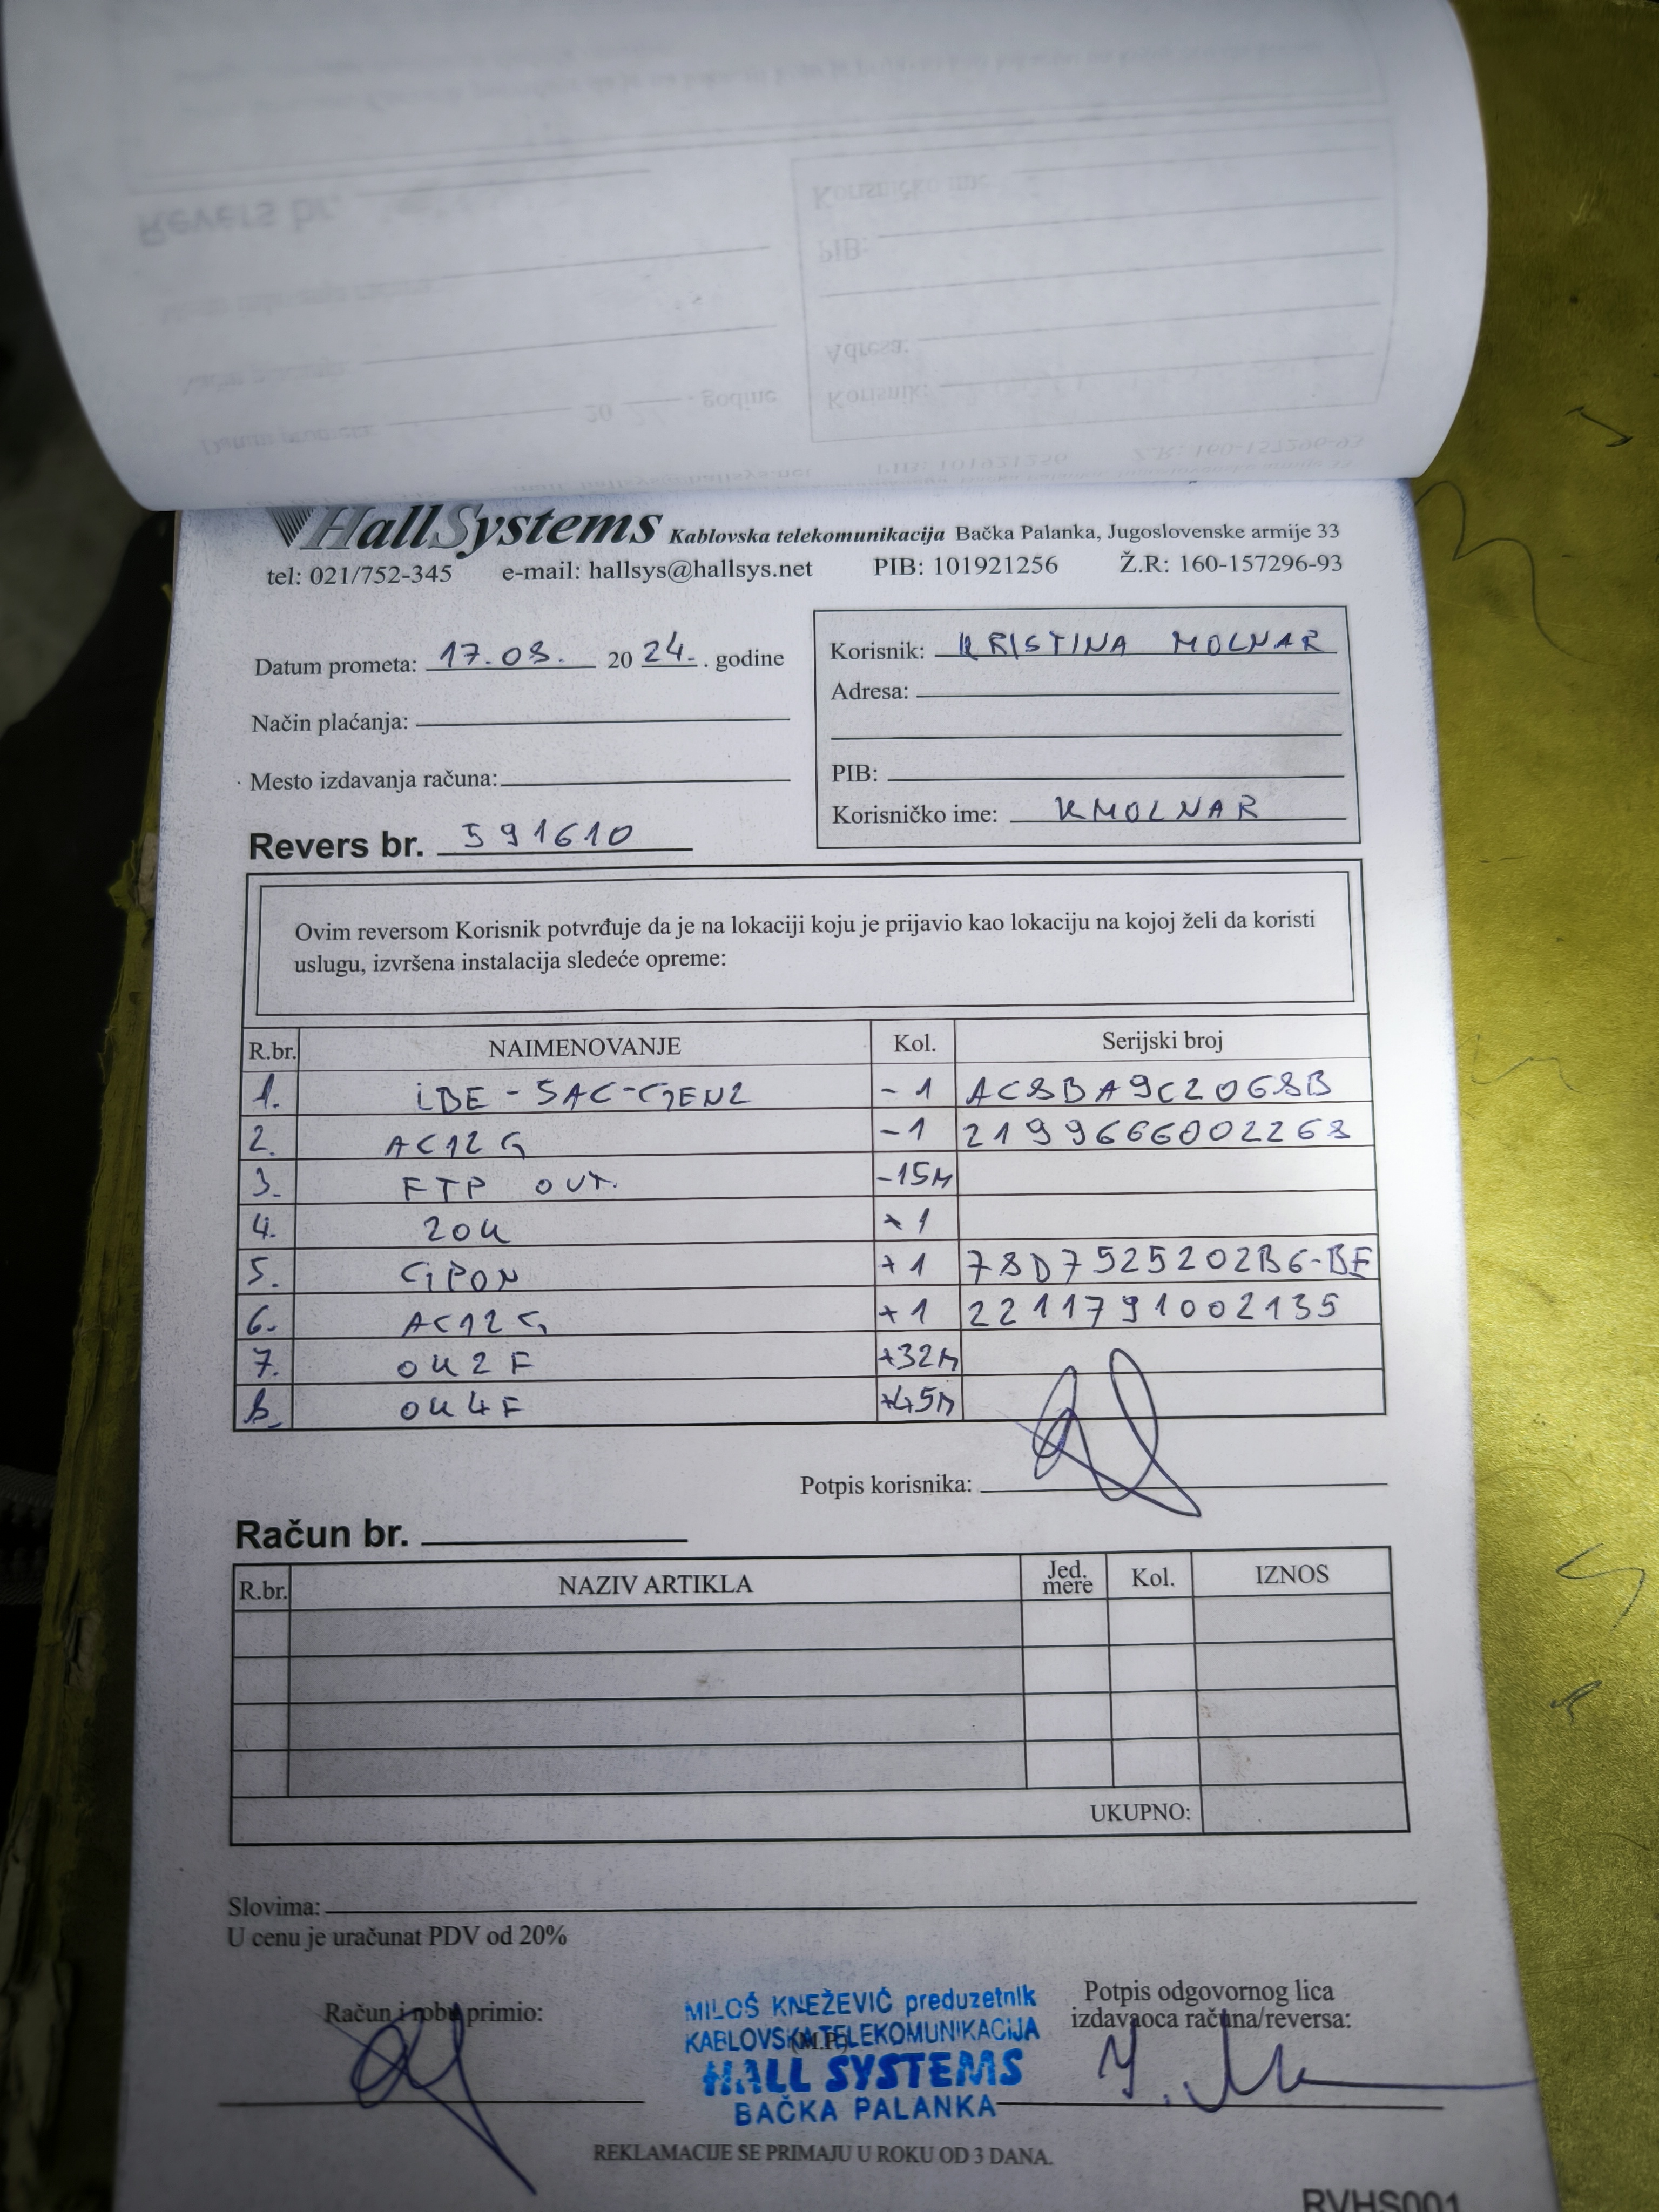 HallSystems Kablovska telekomunikacija Bačka Palanka, Jugoslovenske armije 33
tel: 021/752-345 e-mail: hallsys@hallsys.net PIB: 101921256 Ž.R: 160-157296-93
Datum prometa: 17.08. 20 24. . godine
Način plaćanja:
Mesto izdavanja računa:
Revers br. 591610
Korisnik: KRISTINA MOLNAR
Adresa:
PIB:
Korisničko ime: KMOLNAR
Ovim reversom Korisnik potvrđuje da je na lokaciji koju je prijavio kao lokaciju na kojoj želi da koristi
uslugu, izvršena instalacija sledeće opreme:
R.br. NAIMENOVANJE Kol. Serijski broj
1. LBE-5AC-GEN2 -1 AC8BA9C2068B
2. AC12G -1 2199666002268
3. FTP OUT. -15M
4. ZOK +1
5. GPON +1 78D7525202B6-BE
6. AC12G +1 2211791002135
7. OK2F +32M
8. OK4F +45M
Potpis korisnika:
Račun br.
R.br. NAZIV ARTIKLA Jed. mere Kol. IZNOS
UKUPNO:
Slovima:
U cenu je uračunat PDV od 20%
Račun i robu primio:
MILOŠ KNEŽEVIĆ preduzetnik
KABLOVSKA TELEKOMUNIKACIJA
(M.P.)
HALL SYSTEMS
BAČKA PALANKA
Potpis odgovornog lica
izdavaoca računa/reversa:
REKLAMACIJE SE PRIMAJU U ROKU OD 3 DANA.
RVHS001